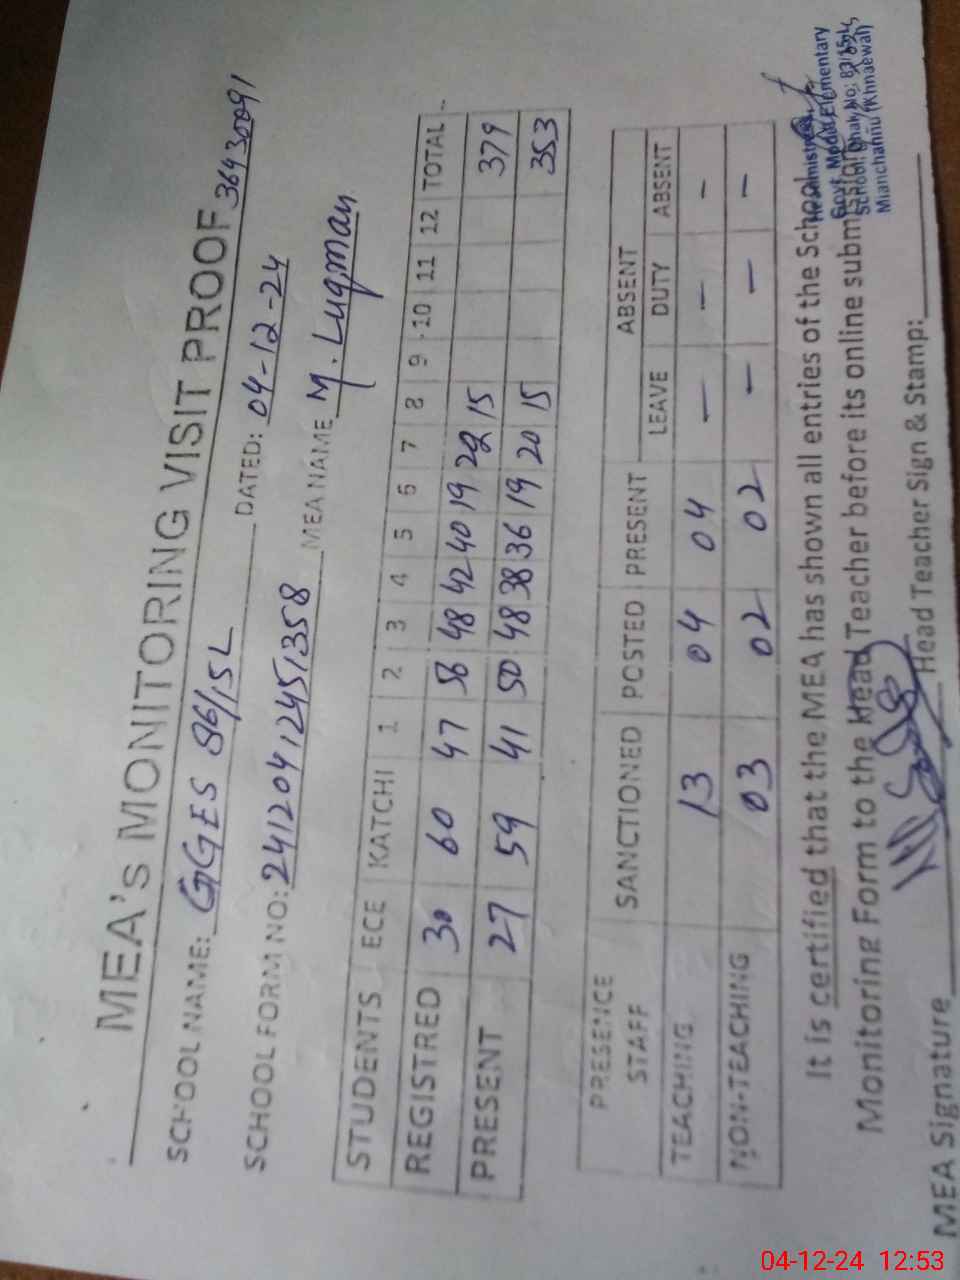 MEA's MONITORING VISIT PROOF 36430091
SCHOOL NAME: GGES 86/15L DATED: 04-12-24
SCHOOL FORM NO: 24120412451358 MEA NAME M. Luqman
STUDENTS ECE KATCHI 1 2 3 4 5 6 7 8 9 10 11 12 TOTAL
REGISTRED 30 60 47 56 48 42 40 19 22 15 379
PRESENT 27 59 41 50 48 38 36 19 20 15 353
PRESENCE STAFF SANCTIONED POSTED PRESENT ABSENT
LEAVE DUTY ABSENT
TEACHING 13 04 04 - - -
NON-TEACHING 03 02 02 - - -
It is certified that the MEA has shown all entries of the School
Monitoring Form to the Head Teacher before its online submission
MEA Signature Head Teacher Sign & Stamp:
Headmistress
Govt. Model Elementary
School Chak No: 83/15-L
Mianchannu (Khanewal)
04-12-24 12:53